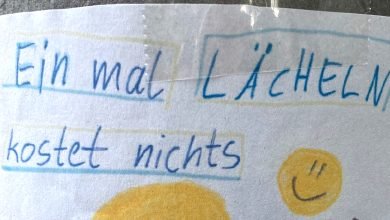 Ein mal LÄCHELN
kostet nichts